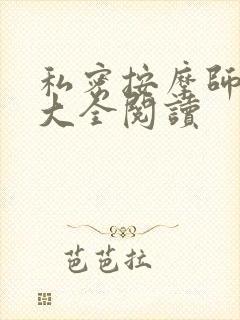 私密按摩師
大全閱讀
芭芭拉